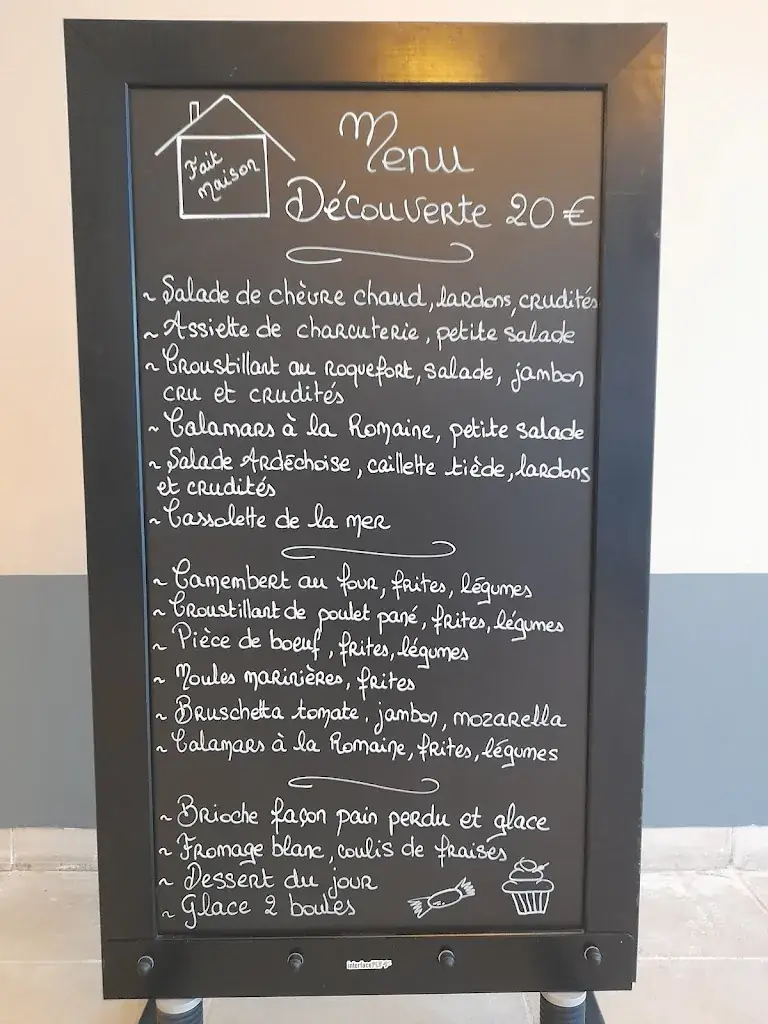 Fait
Maison
Menu
Découverte 20 €
~ Salade de chèvre chaud, lardons, crudités
~ Assiette de charcuterie, petite salade
~ Croustillant au roquefort, salade, jambon
cru et crudités
~ Calamars à la Romaine, petite salade
~ Salade Ardéchoise, caillette tiède, lardons
et crudités
~ Cassolette de la mer
~ Camembert au four, frites, légumes
~ Croustillant de poulet pané, frites, légumes
~ Pièce de boeuf, frites, légumes
~ Moules marinières, frites
~ Bruschetta tomate, jambon, mozarella
~ Calamars à la Romaine, frites, légumes
~ Brioche façon pain perdu et glace
~ Fromage blanc, coulis de fraises
~ Dessert du jour
~ Glace 2 boules